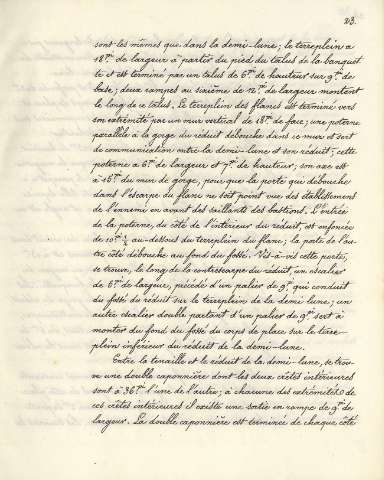 23.
sont les mêmes que dans la demi-lune; le terreplein a
18ᵐ. de largeur à partir du pied du talus de la banquet
te et est terminé par un talus de 6ᵐ. de hauteur sur 9ᵐ. de
base; deux rampes au sixième de 12ᵐ. de largeur montent
le long de ce talus. Le terreplein des flancs est terminé vers
son extrémité par un mur vertical de 18ᵐ. de face; une poterne
parallèle à la gorge du réduit débouche dans ce mur et sert
de communication entre la demi-lune et son réduit; cette
poterne a 6ᵐ. de largeur et 7ᵐ. de hauteur; son axe est
à 16ᵐ. du mur de gorge, pour que la porte qui débouche
dans l'escarpe du flanc ne soit point vue des établissements
de l'ennemi en avant des saillants des bastions. L'entrée
de la poterne, du côté de l'intérieur du réduit, est enfoncée
de 10ᵐ. ½ au-dessous du terreplein du flanc; la porte de l'au-
tre côté débouche au fond du fossé. Vis-à-vis cette porte,
se trouve, le long de la contrescarpe du réduit, un escalier
de 6ᵐ. de largeur, précédé d'un palier de 9ᵐ. qui conduit
du fossé du réduit sur le terreplein de la demi lune; un
autre escalier double partant d'un palier de 9ᵐ. sert à
monter du fond du fossé du corps de place sur le terre-
plein inférieur du réduit de la demi-lune.
Entre la tenaille et le réduit de la demi-lune, se trou-
ve une double caponnière dont les deux crêtes intérieures
sont à 36ᵐ. l'une de l'autre; à chacune des extrémités de
ces crêtes intérieures il existe une sortie en rampe de 9ᵐ. de
largeur. La double caponnière est terminée de chaque côté